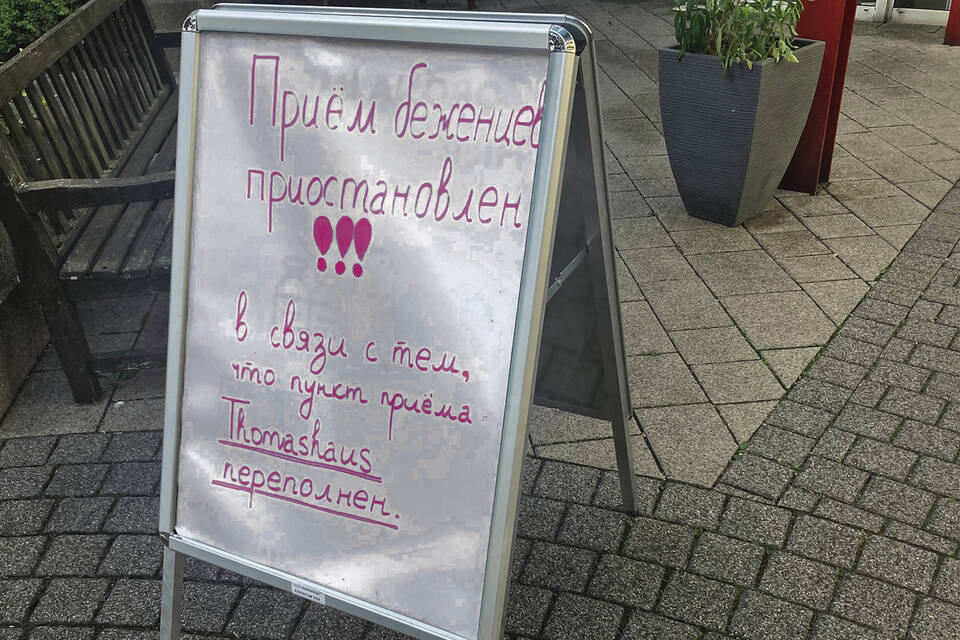 Приём беженцев
приостановлен
!!!
в связи с тем,
что пункт приёма
Thomashaus
переполнен.